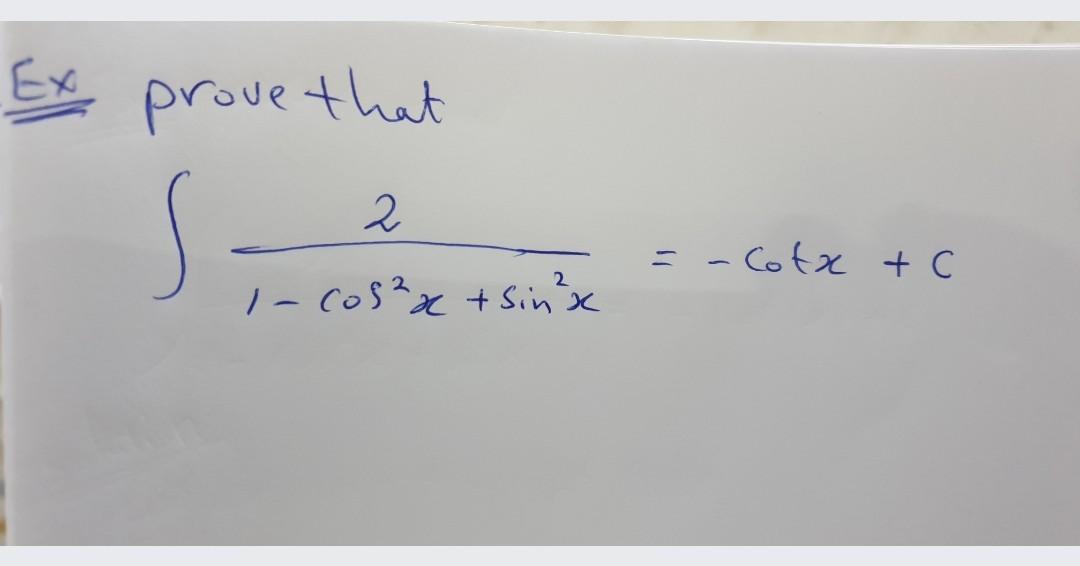 Ex prove that
∫ 2 / (1 - cos²x + sin²x) = - Cotx + C